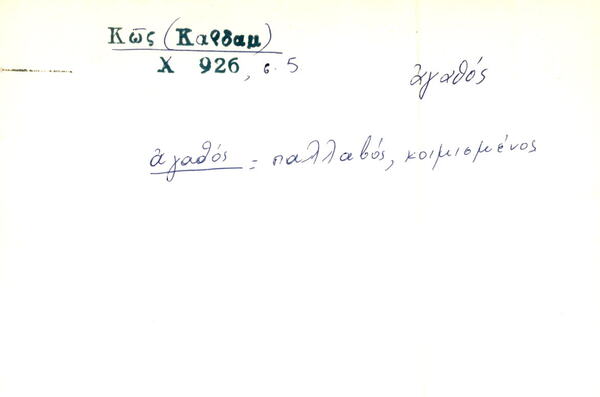 Κῶς (Καρδαμ)
Χ 926, σ. 5
ἀγαθός
ἀγαθός = παλλαβός, κοιμισμένος